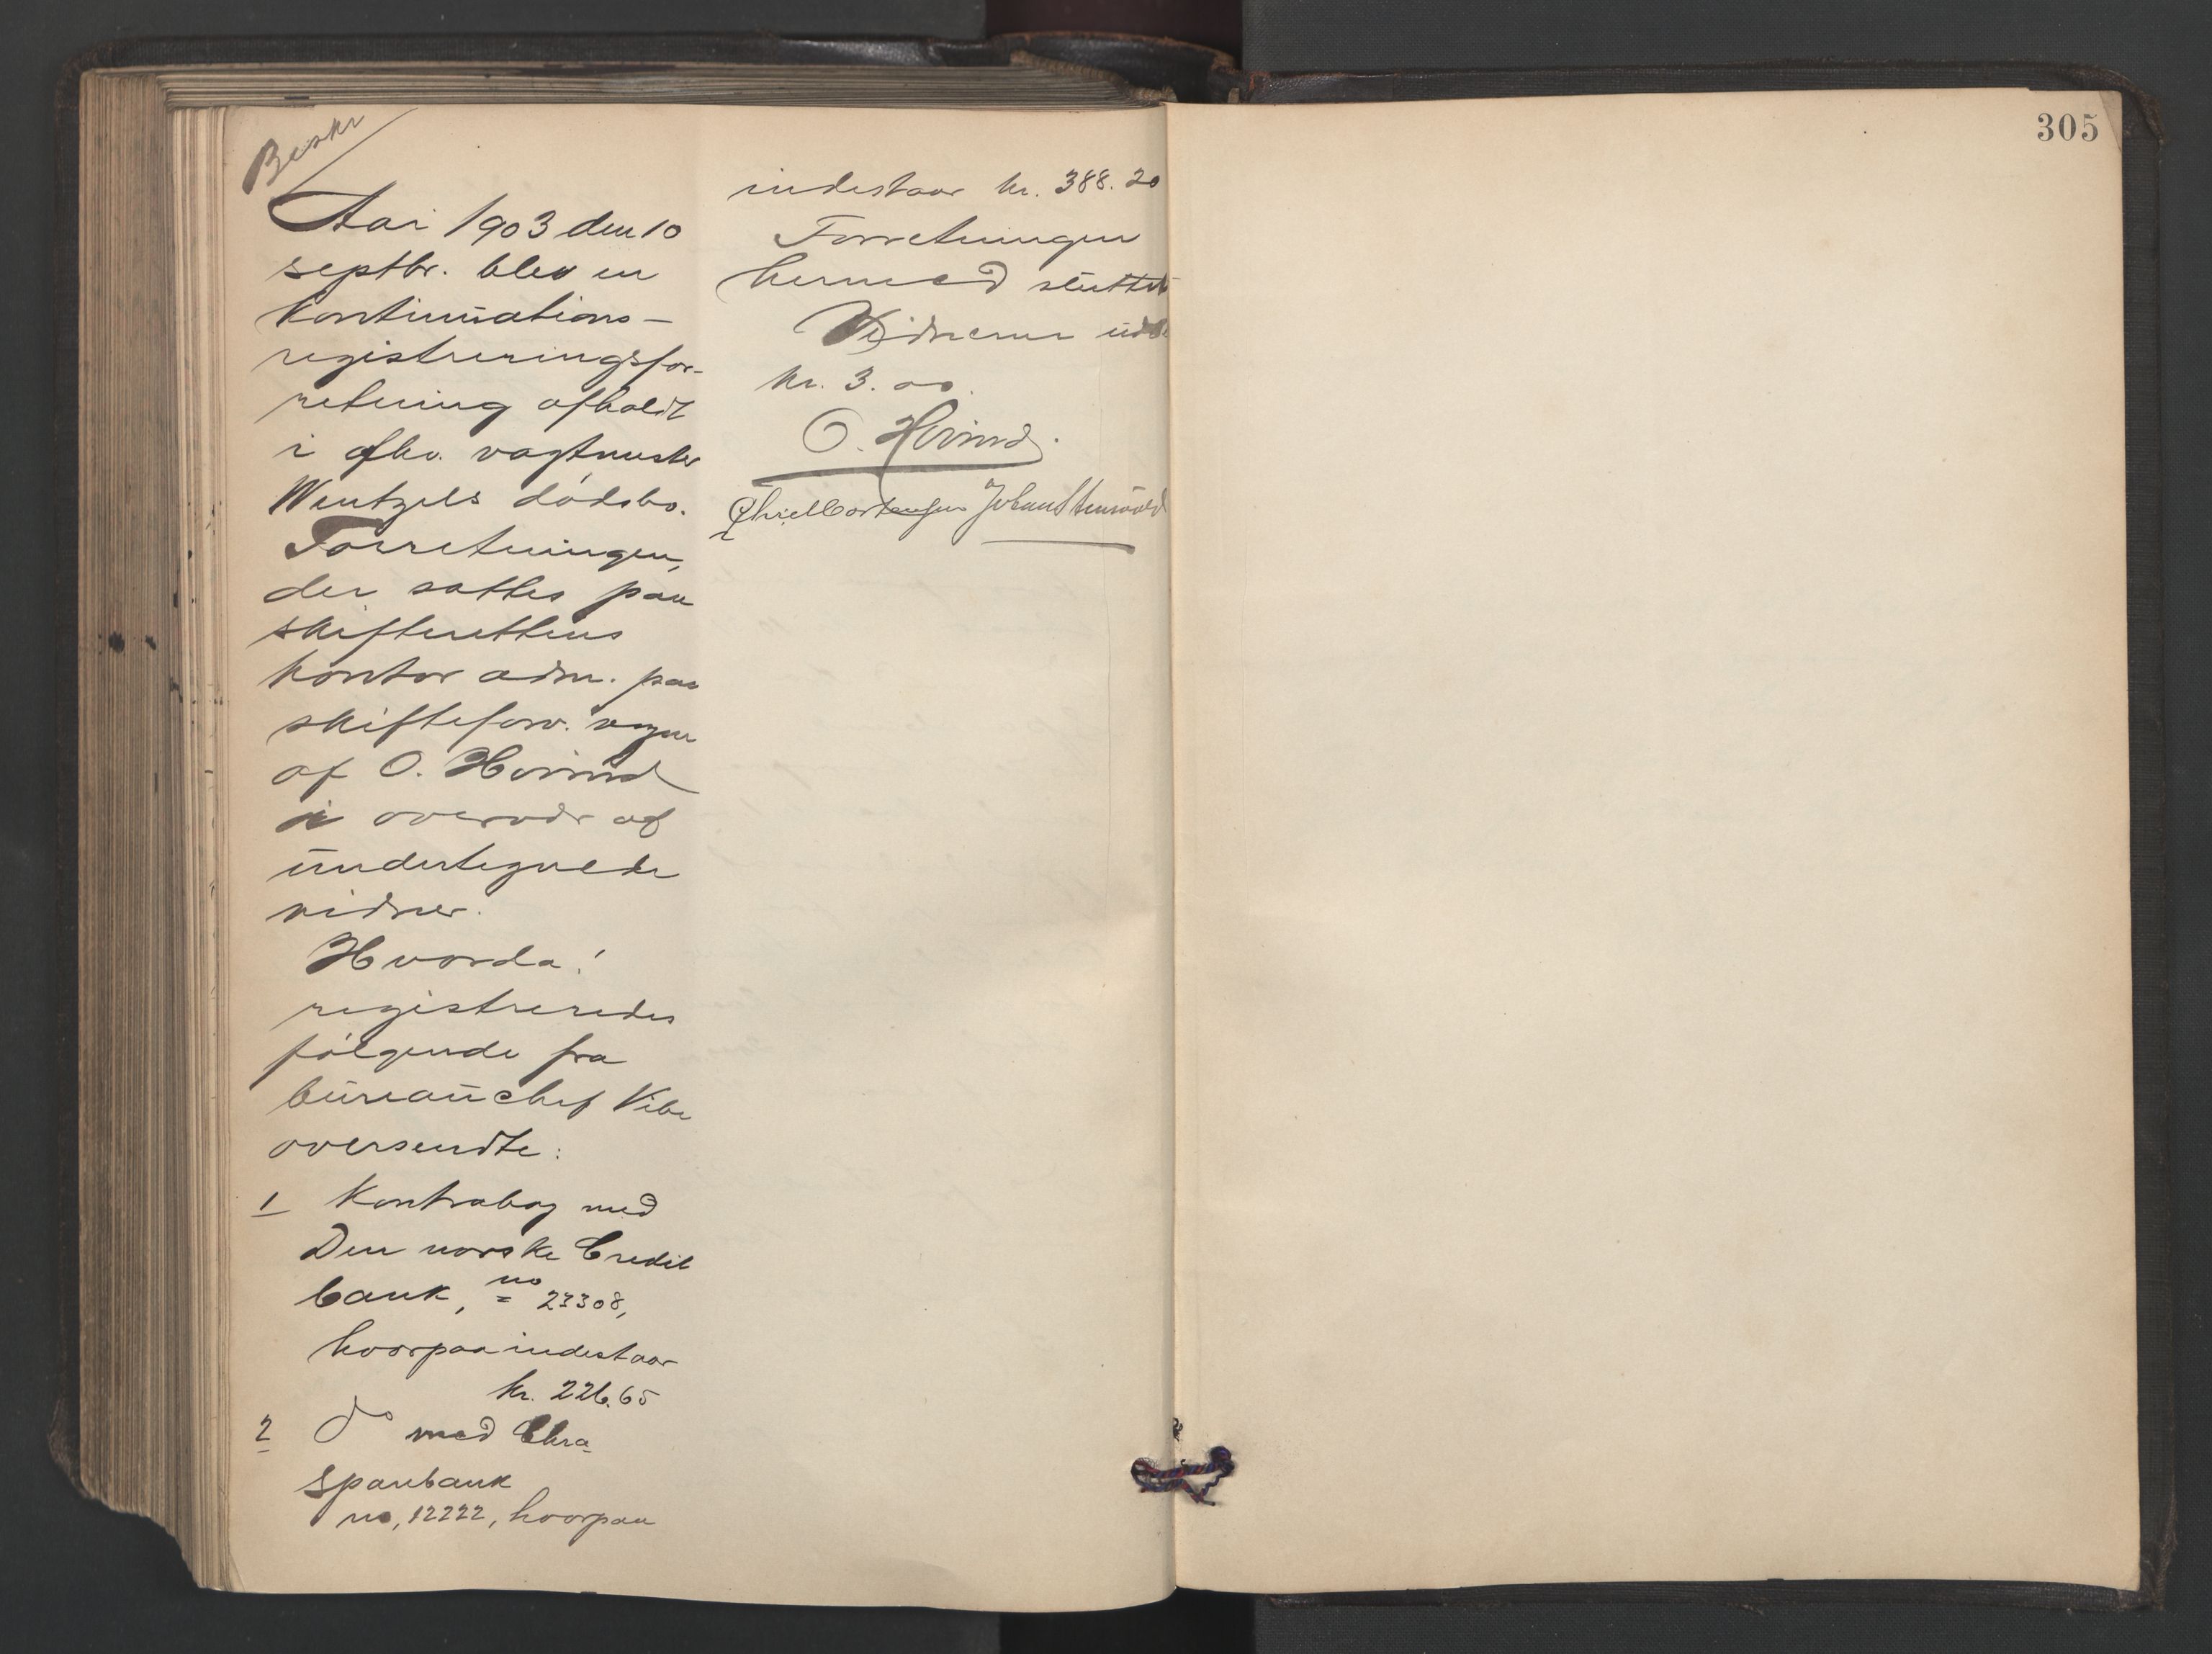 Beskr
Aar 1903 den 10
septbr. blev en
kontinuations-
registreringsfor-
retning afholdt
i afdø. vagtmester
Wentzels dødsbo.
Forretningen,
der sattes paa
skifterettens
kontor adm. paa
skifteforv. vegne
af O. Hovind
i overvær af
undertegnede
vidner.
Hvorda!
registreredes
følgende fra
bureauchef Vibe
oversendte:
1 Kontrabog med
Den norske Credit
bank, no 23308,
hvorpaa indestaar
kr. 226.65
2 do med Chra
sparebank
no, 12222, hvorpaa
indestaar kr. 388.20
Forretningen
hermed sluttet
Vidnerne
kr. 3.00.
O. Hovind.
Johan
305